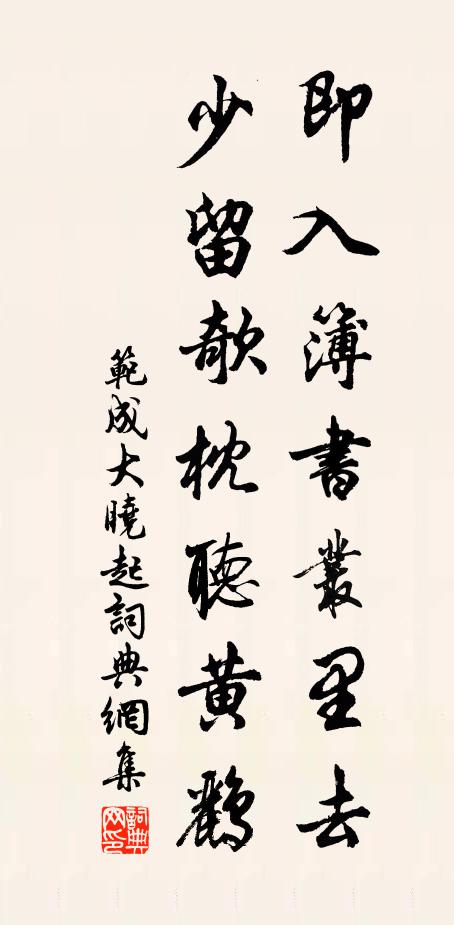 即入簿書叢里去
少留欹枕聽黃鸝
範成大曉起詞典網集
詞典网印